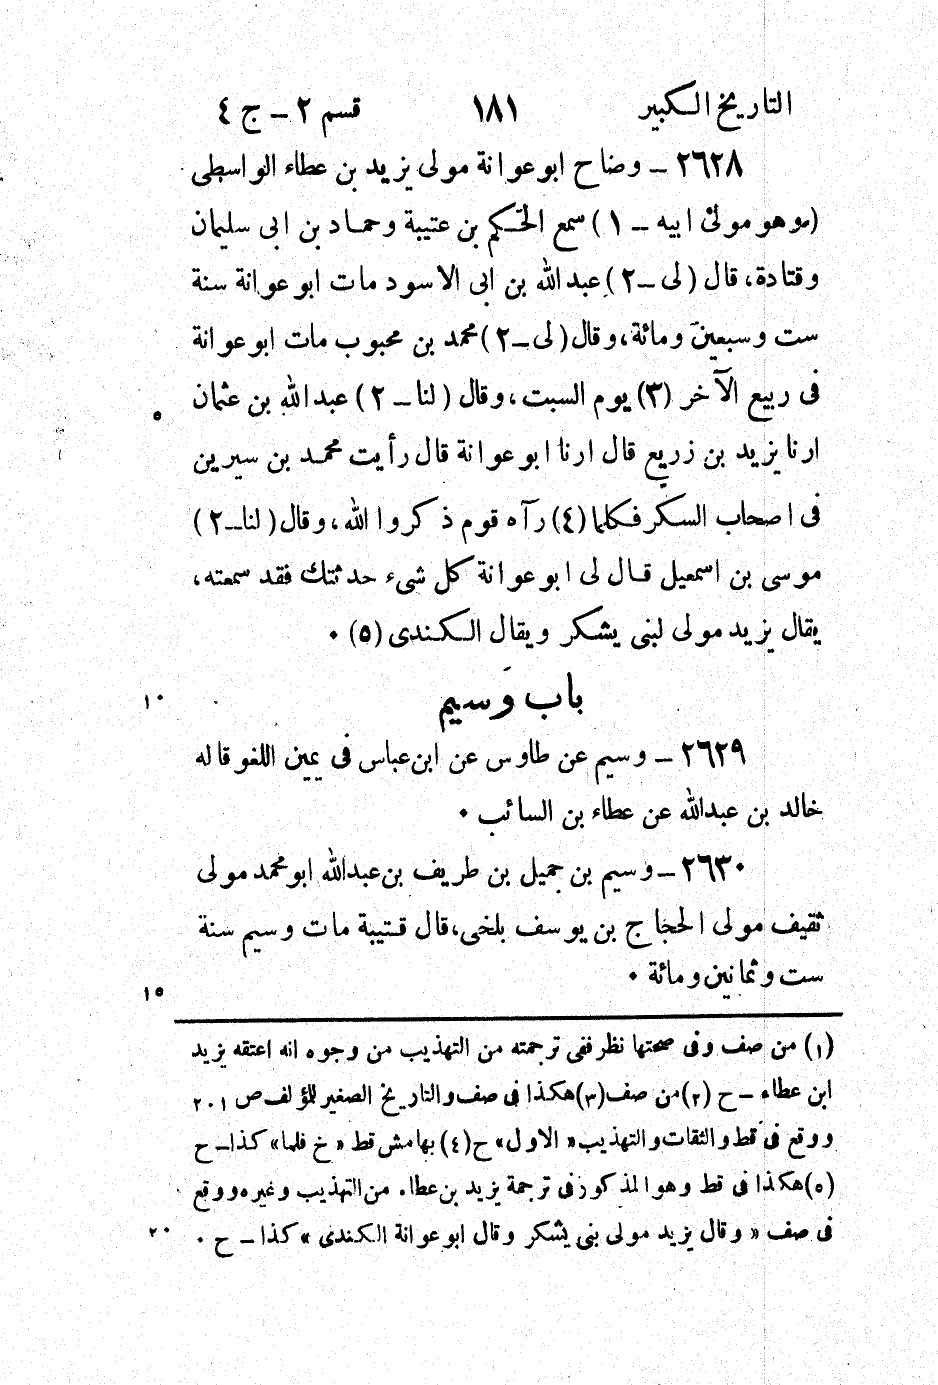 التاريخ الكبير ١٨١ قسم ٢ - ج ٤
٢٦٢٨ - وضاح ابو عوانة مولى يزيد بن عطاء الواسطى
(وهو مولى ابيه - ١) سمع الحَكم بن عتيبة وحماد بن ابى سليمان
وقتادة، قال (لى - ٢) عبد الله بن ابى الاسود مات ابو عوانة سنة
ست وسبعين ومائة، وقال (لى - ٢) محمد بن محبوب مات ابو عوانة
فى ربيع الآخر (٣) يوم السبت، وقال (لنا - ٢) عبد الله بن عثمان ٥
ارنا يزيد بن زريع قال ارنا ابو عوانة قال رأيت محمد بن سيرين
فى اصحاب السكر فكلما (٤) رآه قوم ذكروا الله، وقال (لنا - ٢)
موسى بن اسمعيل قال لى ابو عوانة كل شىء حدثتك فقد سمعته،
يقال يزيد مولى لبنى يشكر ويقال الكندى (٥) ٠
باب وَسيم ١٠
٢٦٢٩ - وسيم عن طاوس عن ابن عباس فى يمين اللغو قاله
خالد بن عبد الله عن عطاء بن السائب ٠
٢٦٣٠ - وسيم بن جميل بن طريف بن عبد الله ابو محمد مولى
ثقيف مولى الحجاج بن يوسف بلخى، قال قتيبة مات وسيم سنة
ست وثمانين ومائة ٠ ١٥
(١) من صف وفى صحتها نظر ففى ترجمته من التهذيب من وجوه انه اعتقه يزيد
ابن عطاء - ح (٢) من صف (٣) هكذا فى صف والتاريخ الصغير للمؤلف ص ٢٠١
ووقع فى قط والثقات والتهذيب « الاول » ح (٤) بهامش قط « خ فلما » كذا - ح
(٥) هكذا فى قط وهو المذكور فى ترجمة يزيد بن عطاء من التهذيب وغيره ووقع
فى صف « وقال يزيد مولى بنى يشكر وقال ابو عوانة الكندى » كذا - ح ٠ ٢٠